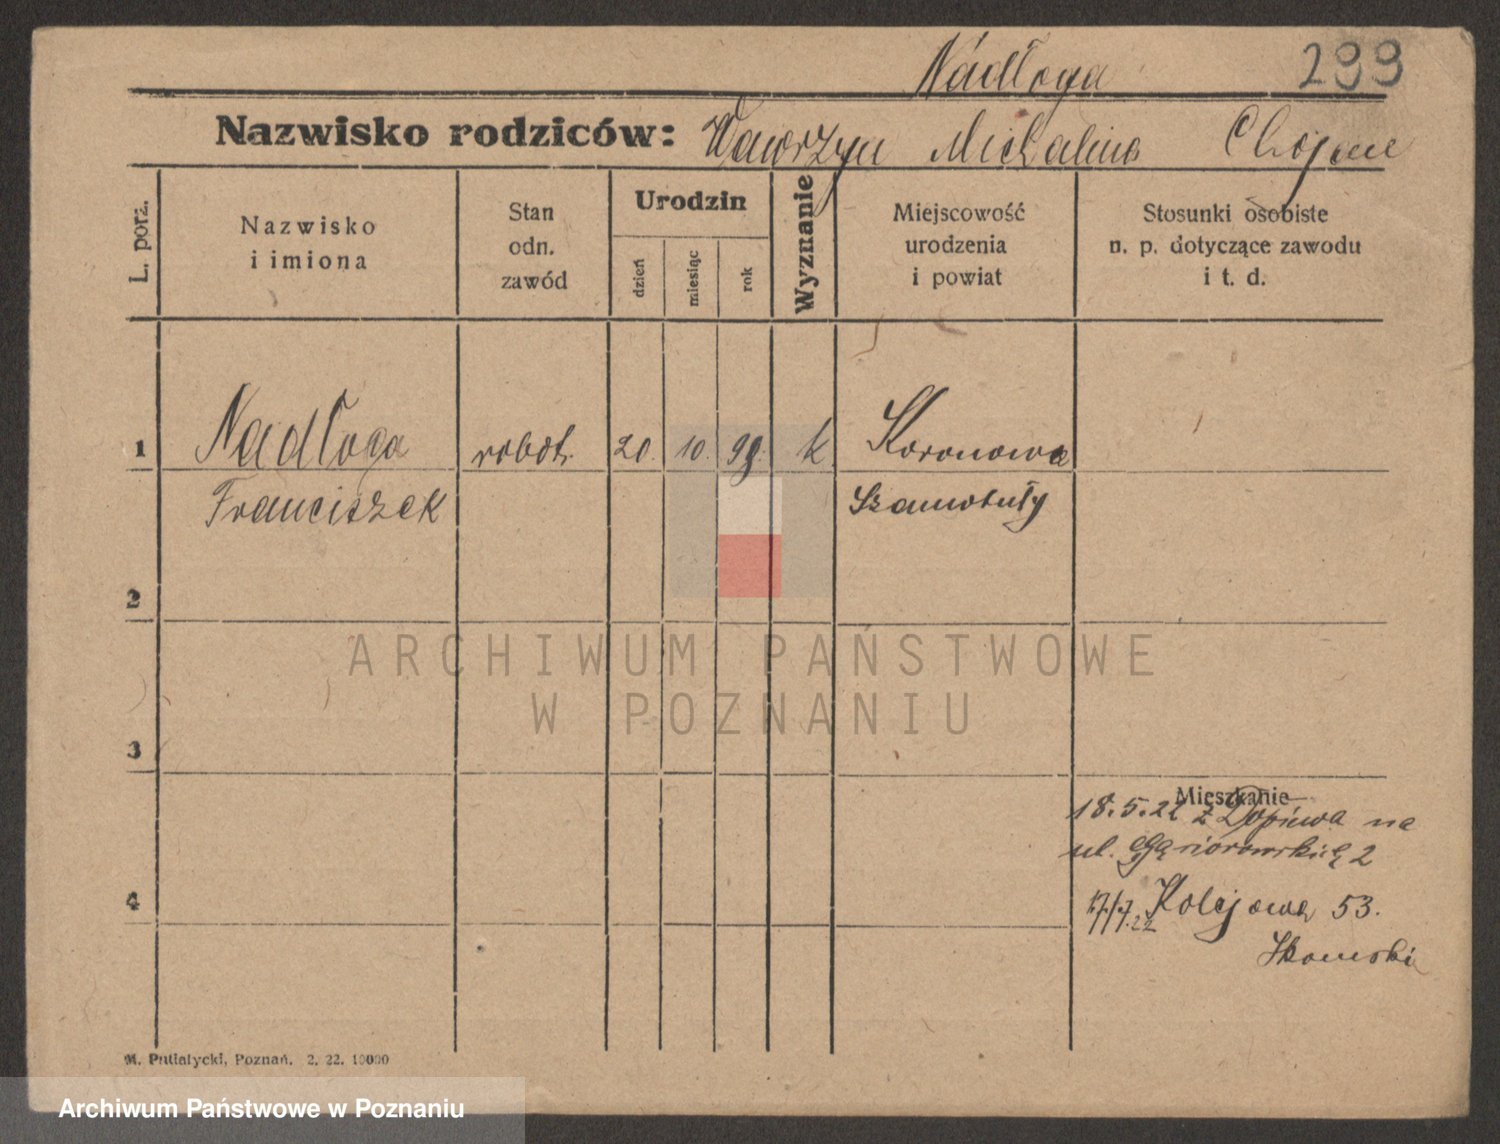 Nadłoga 299
Nazwisko rodziców: Wawrzyn Michalina
L. porz.
Nazwisko
i imiona
Stan
odn.
zawód
Urodzin
dzień
miesiąc
rok
Wyznanie
Miejscowość
urodzenia
i powiat
Stosunki osobiste
n. p. dotyczące zawodu
i t. d.
1 Nadłoga robot. 20. 10. 99. k Koronowo
Franciszek Szamotuły
2
3
4
ARCHIWUM PAŃSTWOWE
W POZNANIU
Mieszkanie
18.5.22 z Dopiewa na
ul. Gąsiorowskich 2
17/7.22 Kolejowa 53.
M. Putiatycki, Poznań. 2. 22. 10000
Archiwum Państwowe w Poznaniu